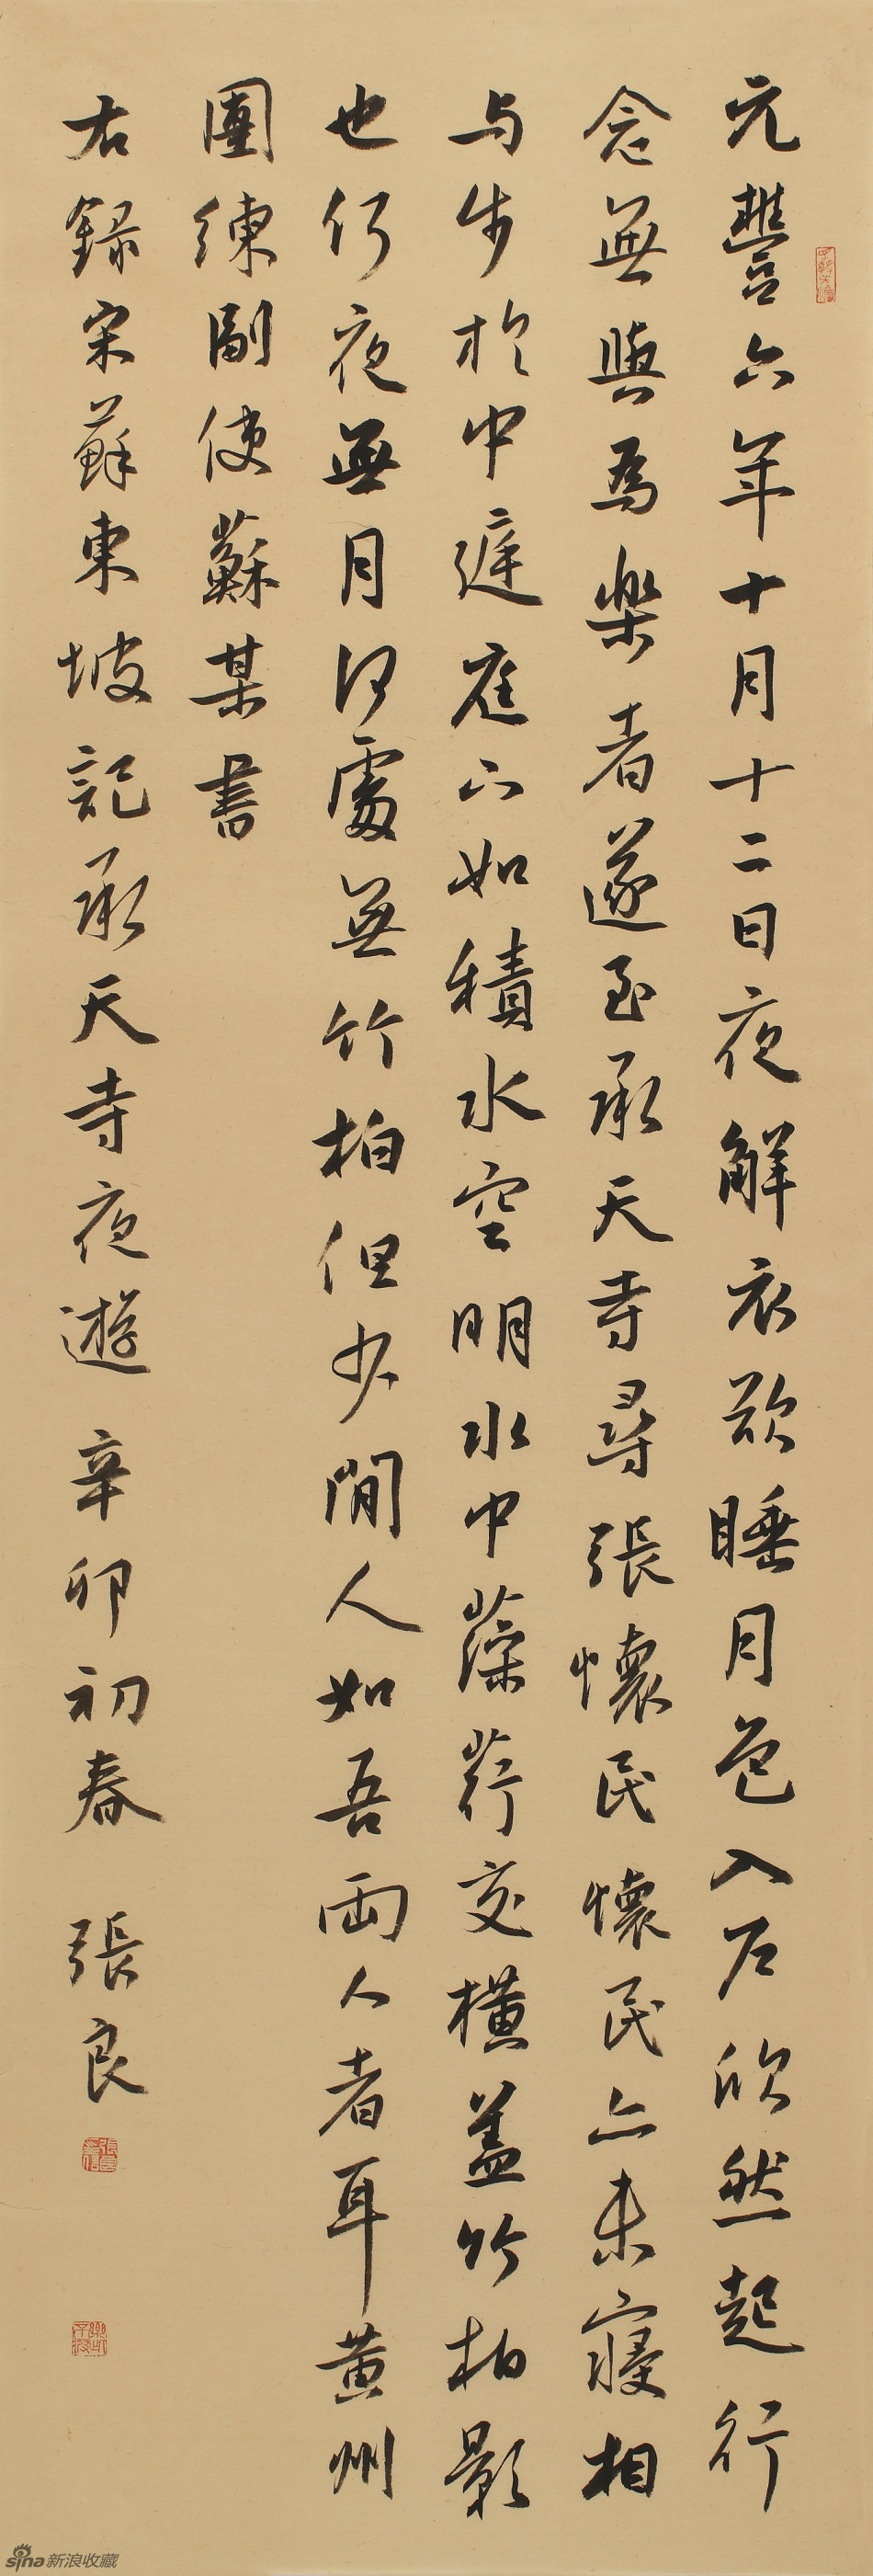 元豐六年十月十二日夜解衣欲睡月色入戶欣然起行
念無與為樂者遂至承天寺尋張懷民懷民亦未寢相
与步於中遲庭下如積水空明水中藻荇交橫蓋竹柏影
也何夜無月何處無竹柏但少閒人如吾兩人者耳黃州
團練副使蘇某書
右錄宋蘇東坡記承天寺夜遊 辛卯初春 張良
sina新浪收藏